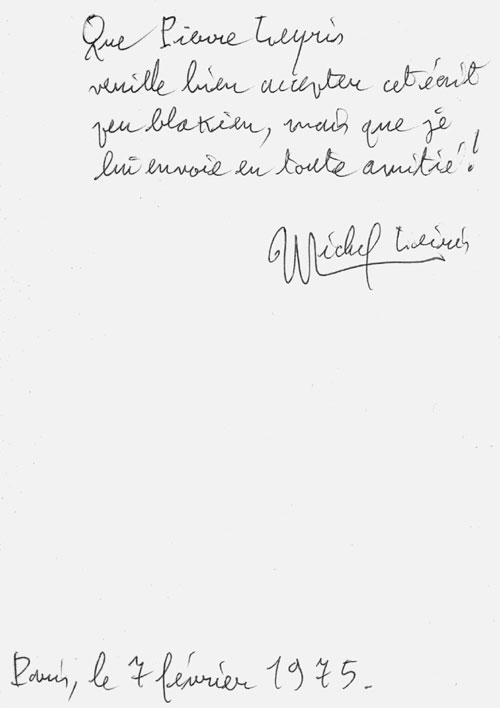 Que Pierre Leyris
veuille bien accepter cet écrit
peu blakien, mais que je
lui envoie en toute amitié !
Michel Leiris
Paris, le 7 février 1975.